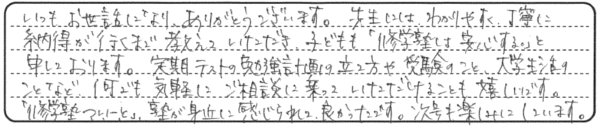 いつもお世話になり、ありがとうございます。先生には、わかりやすく、丁寧に
納得が行くまで教えていただき、子どもも「修学塾は安心する」と
申しております。定期テストの勉強計画の立て方や受験のこと、大学生活の
ことなど、何でも気軽にご相談に乗っていただけることも嬉しいです。
「修学塾ついーと」、塾が身近に感じられて良かったです。次号も楽しみにしています。